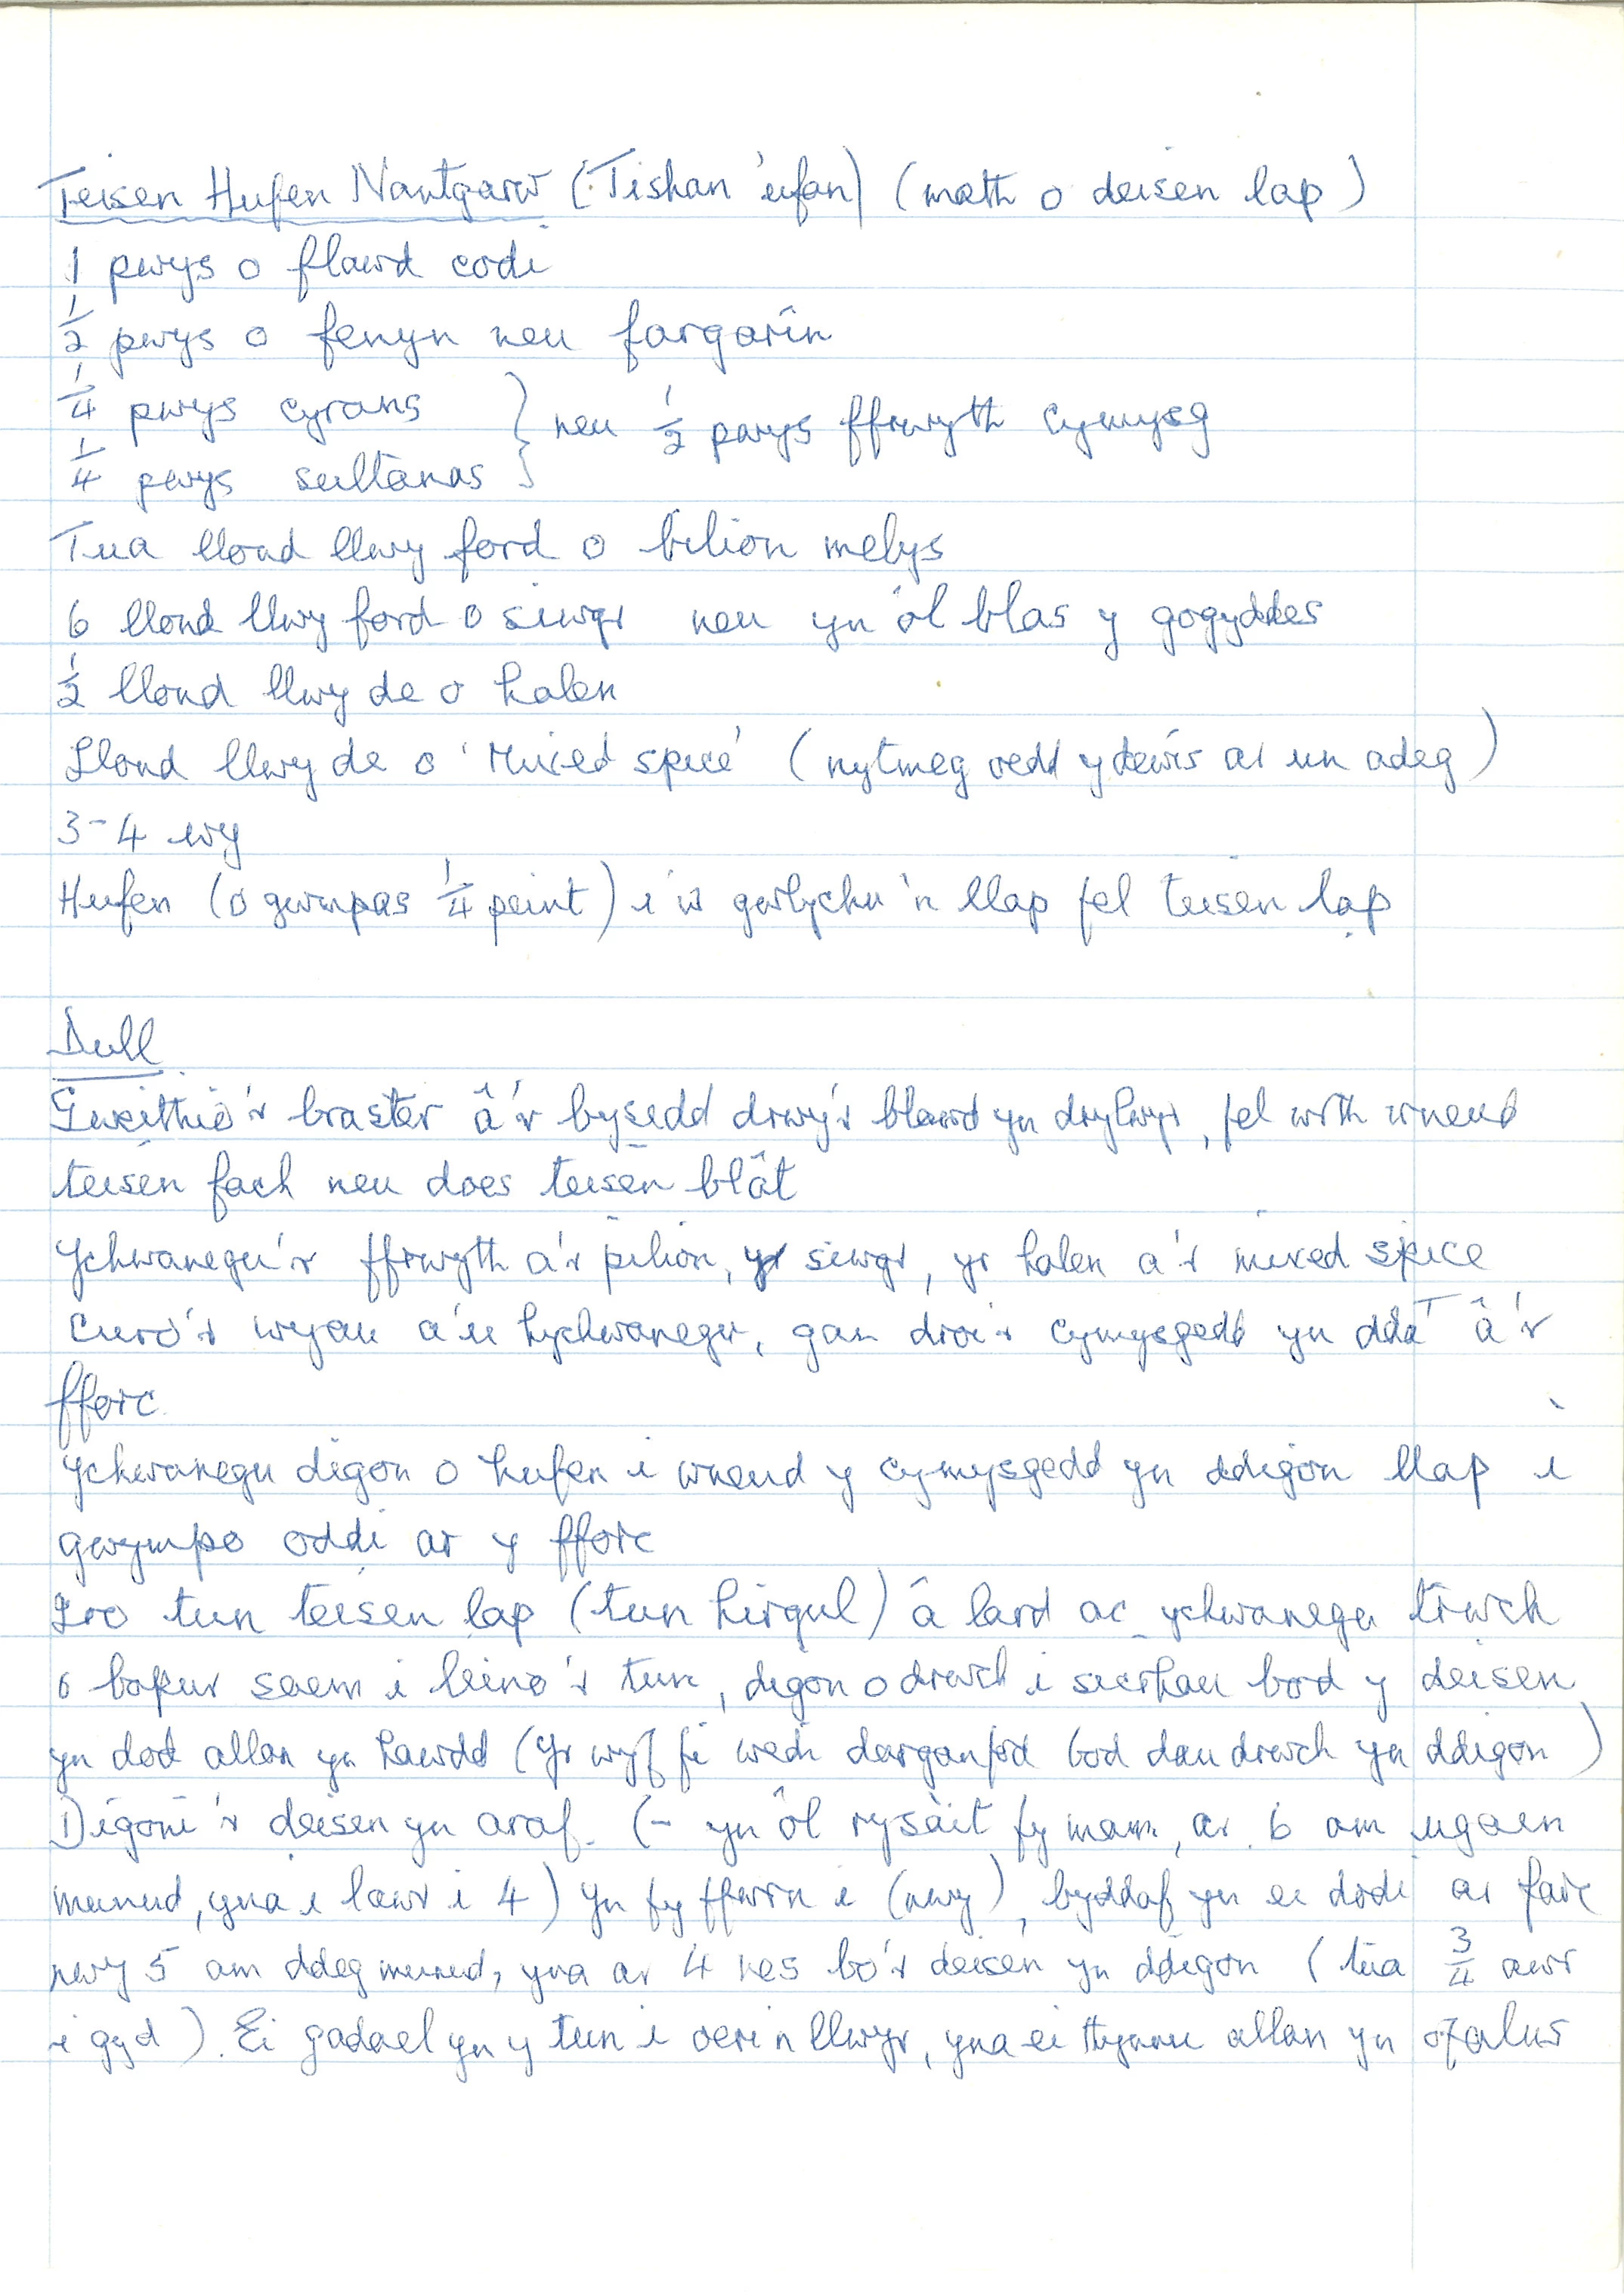 Teisen Hufen Nantgarw (Tishan 'ufan) (math o deisen lap)
1 pwys o flawd codi
½ pwys o fenyn neu fargarîn
¼ pwys cyrans } neu ½ pwys ffrwyth cymysg
¼ pwys sultanas
Tua llond llwy ford o bilion melys
6 llond llwy ford o siwgr neu yn ôl blas y gogyddes
½ llond llwy de o halen
Llond llwy de o 'Mixed spice' (nytmeg oedd y dewis ar un adeg)
3-4 wy
Hufen (o gwmpas ¼ peint) i'w gwlychu'n llap fel teisen lap
Dull
Gweithio'r braster â'r bysedd drwy'r blawd yn drylwyr, fel wrth wneud
teisen fach neu does teisen blât
Ychwanegu'r ffrwyth a'r pilion, yr siwgr, yr halen a'r mixed spice
Curo'r wyau a'u hychwanegu, gan droi'r cymysgedd yn dda â'r
fforc
Ychwanegu digon o hufen i wneud y cymysgedd yn ddigon llap i
gwympo oddi ar y fforc
Iro tun teisen lap (tun hirgul) â lard ac ychwanegu trwch
o bapur saem i leino'r tun, digon o drwch i sicrhau bod y deisen
yn dod allan yn hawdd (Yr wyf fi wedi darganfod bod dau drwch yn ddigon)
Digoni'r deisen yn araf. (- yn ôl rysàit fy mam, ar 6 am ugaen
munud, yna i lawr i 4) Yn fy ffwrn i (nwy), byddaf yn ei dodi ar farc
nwy 5 am ddeg munud, yna ar 4 nes bo'r deisen yn ddigon (tua ¾ awr
i gyd). Ei gadael yn y tun i oeri'n llwyr, yna ei thynnu allan yn ofalus